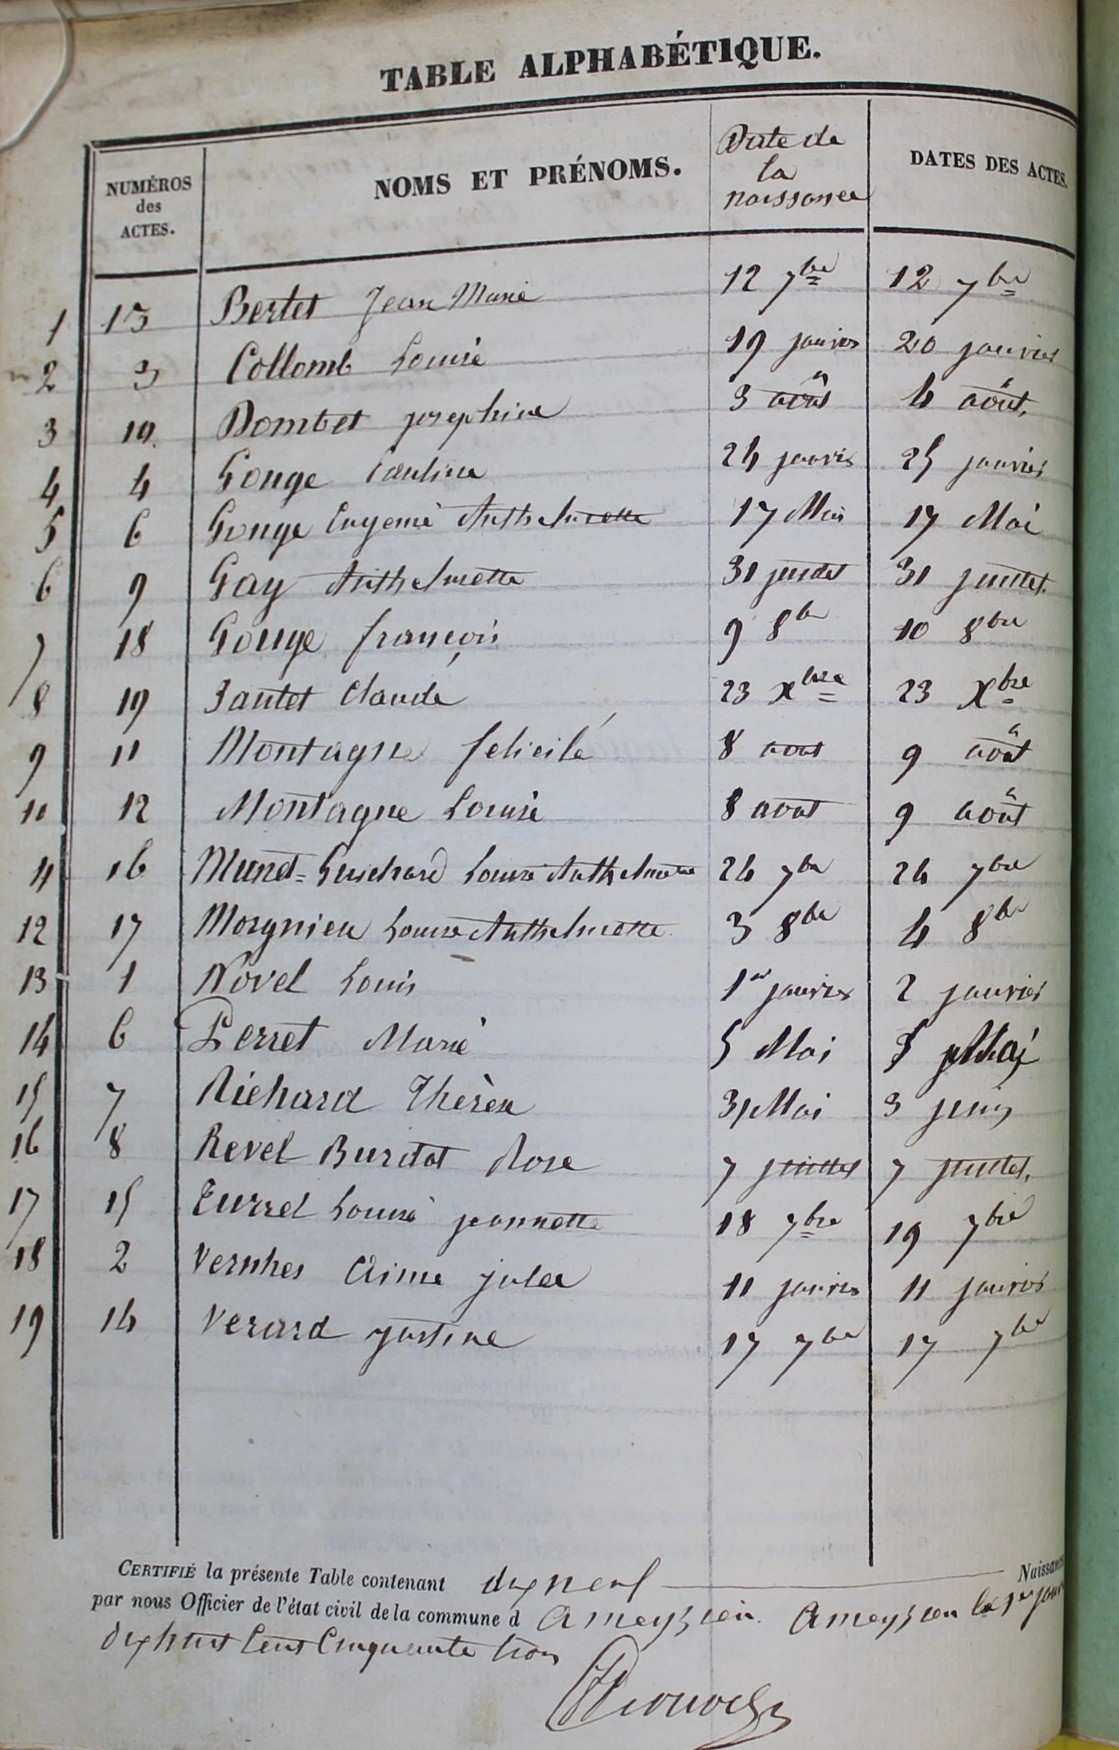 TABLE ALPHABÉTIQUE.
NUMÉROS des ACTES. NOMS ET PRÉNOMS. Date de la naissance DATES DES ACTES.
1 13 Bertet Jean Marie 12 7bre 12 7bre
2 3 Collomb Louise 19 janvier 20 janvier
3 10 Dombet josephine 3 août 4 août.
4 4 Gouge Pauline 24 janvier 25 janvier
5 6 Gouge Eugenie Anthelmette 17 Mai 17 Mai
6 9 Gay Anthelmette 31 juillet 31 juillet.
7 18 Gouge françois 9 8bre 10 8bre
8 19 Jantet Claude 23 Xbre 23 Xbre
9 11 Montagne felicité 8 aout 9 août
10 12 Montagne Louise 8 aout 9 août
11 16 Munet=Guichard Louise Anthelmette 24 7bre 24 7bre
12 17 Morgnieu Louise Anthelmette 3 8bre 4 8bre
13 1 Novel Louis 1er janvier 2 janvier
14 6 Perret Marie 5 Mai 5 Mai
15 7 Richard Thérèse 31 Mai 3 juin
16 8 Revel Burdet Rose 7 juillet 7 juillet.
17 15 Turrel Louise jeannette 18 7bre 19 7bre
18 2 Vernhes Aime jules 11 janvier 11 janvier
19 14 Verard justine 17 7bre 17 7bre
CERTIFIÉ la présente Table contenant dix neuf Naissances
par nous Officier de l'état civil de la commune d Ameyzieu. Ameyzieu le 1er janv
dix huit Cent Cinquante trois